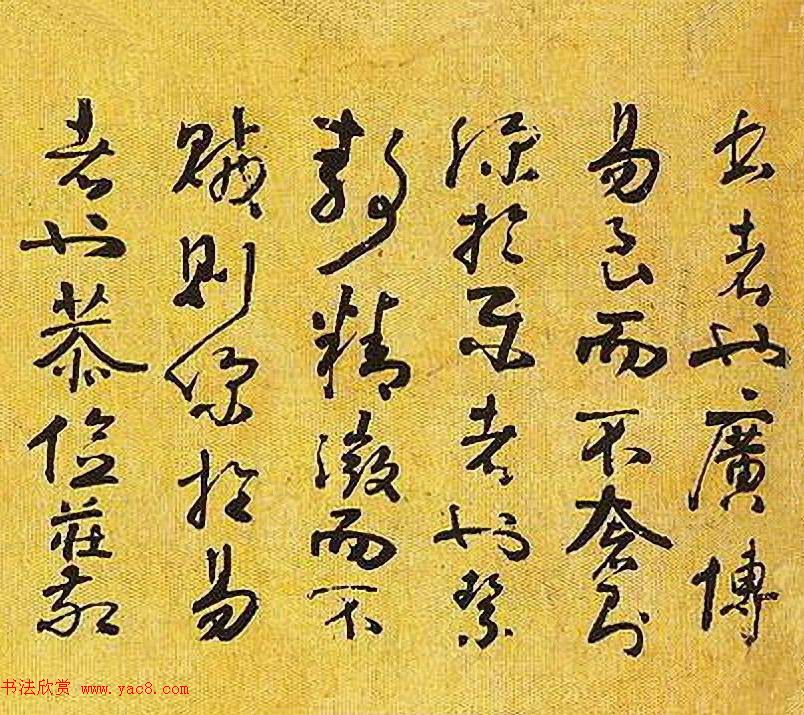 書者也廣博
易良而不奢則
深於樂者也絜
靜精微而不
賊則深於易
者也恭儉莊敬
书法欣赏 www.yac8.com